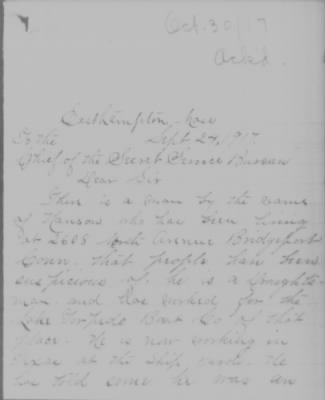 Oct. 30/17
Ack'd.
Easthampton, Mass
To the Sept 24, 1917.
Chief of the Secret Service Bureau
Dear Sir
There is a man by the name
of Hanson who has been living
at 2608 North Avenue Bridgeport
Conn. that people have been
suspicious of. he is a draughts-
man and has worked for the
Lake Torpedo Boat Co. of that
place. He is now working in
at the Ship yards. He
has told some he was an